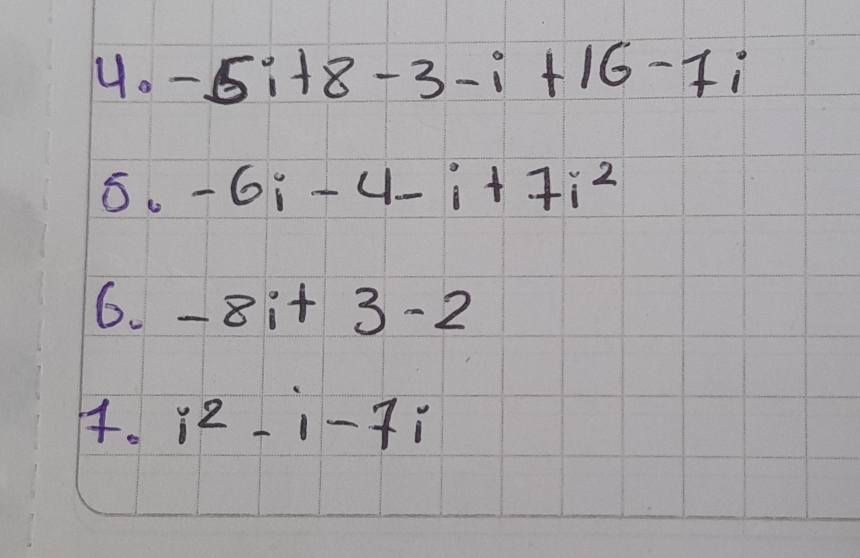 4. -5i+8-3-i+16-7i
5. -6i-4-i+7i²
6. -8i+3-2
7. i²-i-7i